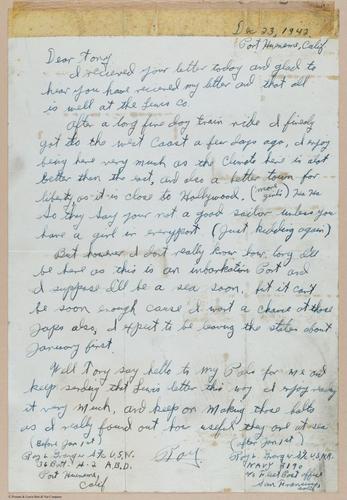 Dec 23, 1942
Port Hueneme, Calif.
Dear Tony
I recieved your letter today and glad to
hear you have recieved my letter and that all
is well at the Lewis Co.
After a long five day train ride I finely
got to the west Coast a few days ago, I enjoy
being here very much as the climate here is alot
better than the east, and also a better town for
liberty as it is close to Hollywood. (more girls) Ha Ha
So they say your not a good sailor unless you
have a girl in every port (Just kidding again)
But however I dont really know how long I'll
be here as this is an imbarkation Port and
I suppose I'll be a sea soon, but it can't
be soon enough cause I want a chance at those
Japs also, I expect to be leaving the states about
January first.
Well Tony say hello to my Pals for me and
keep sending that Lewis letter this way I enjoy
it very much, and keep on making those
as I really found out how useful they are at sea
(Before Jan 1st)
(after Jan 1st)
Roy
U.S.N.
36 Batt. A-2 A.B.D.
Port Hueneme,
Calif
Roy L.
NAVY
Fleet Post office
San Francisco